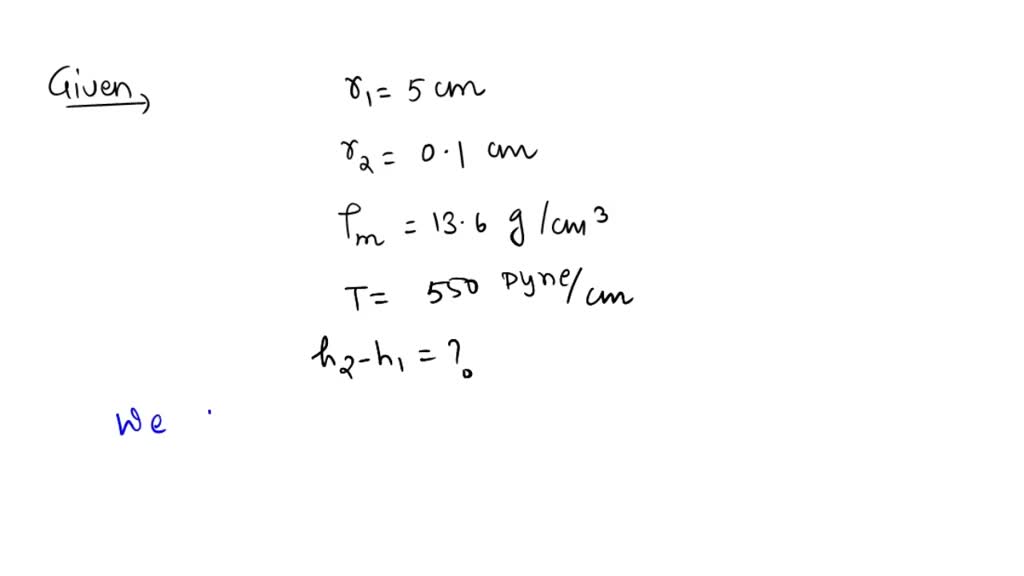 Given
r₁ = 5 cm
r₂ = 0.1 cm
ρₘ = 13.6 g/cm³
T = 550 Dyne/cm
h₂-h₁ = ?
We